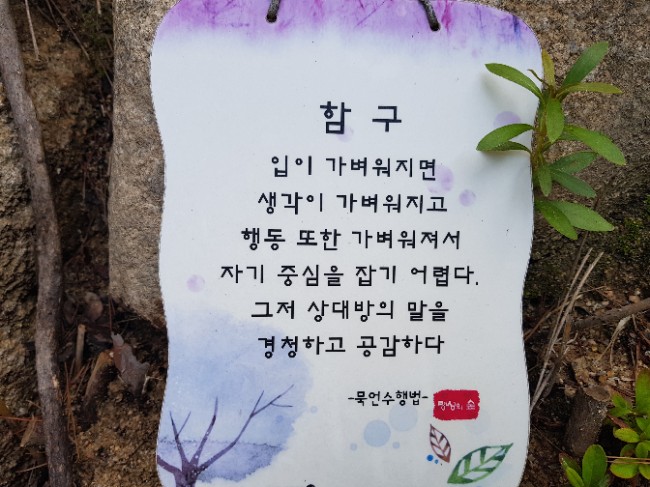 함 구
입이 가벼워지면
생각이 가벼워지고
행동 또한 가벼워져서
자기 중심을 잡기 어렵다.
그저 상대방의 말을
경청하고 공감하다
-묵언수행법-
명상의 숲